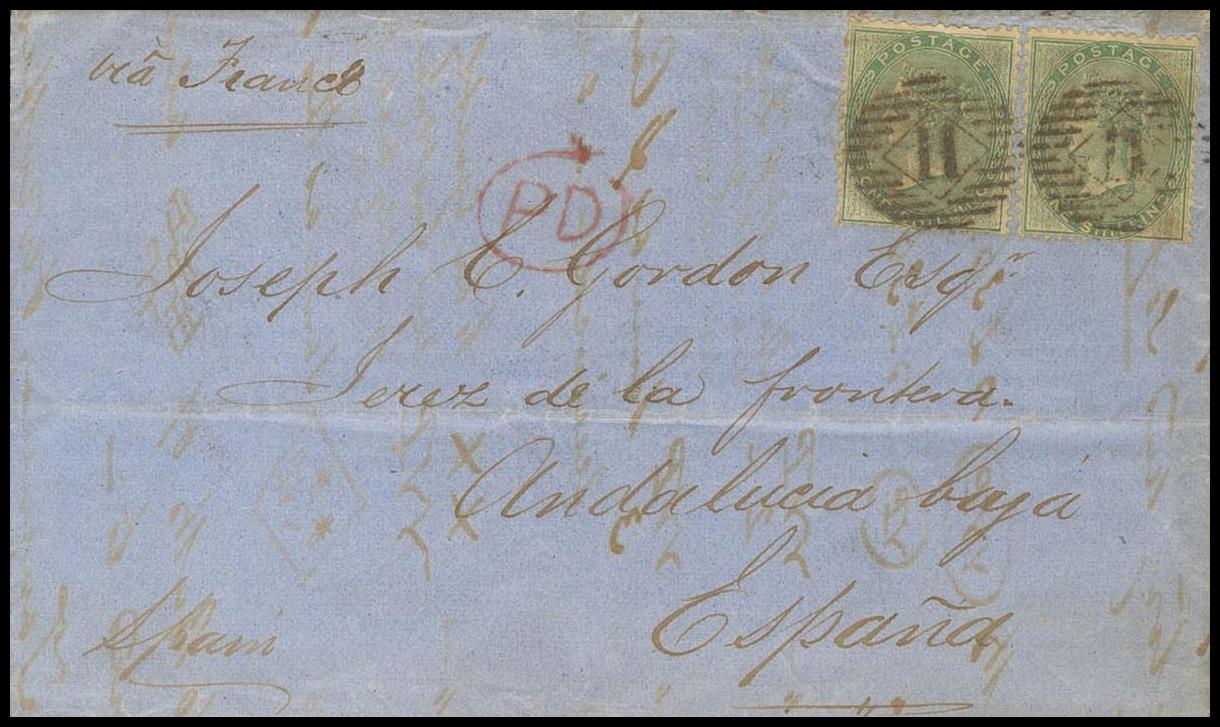 viâ France
POSTAGE
POSTAGE
ONE SHILLING
ONE SHILLING
11
11
PD
Joseph C. Gordon Esqr
Jerez de la frontera.
Andalucia baja
España
Spain